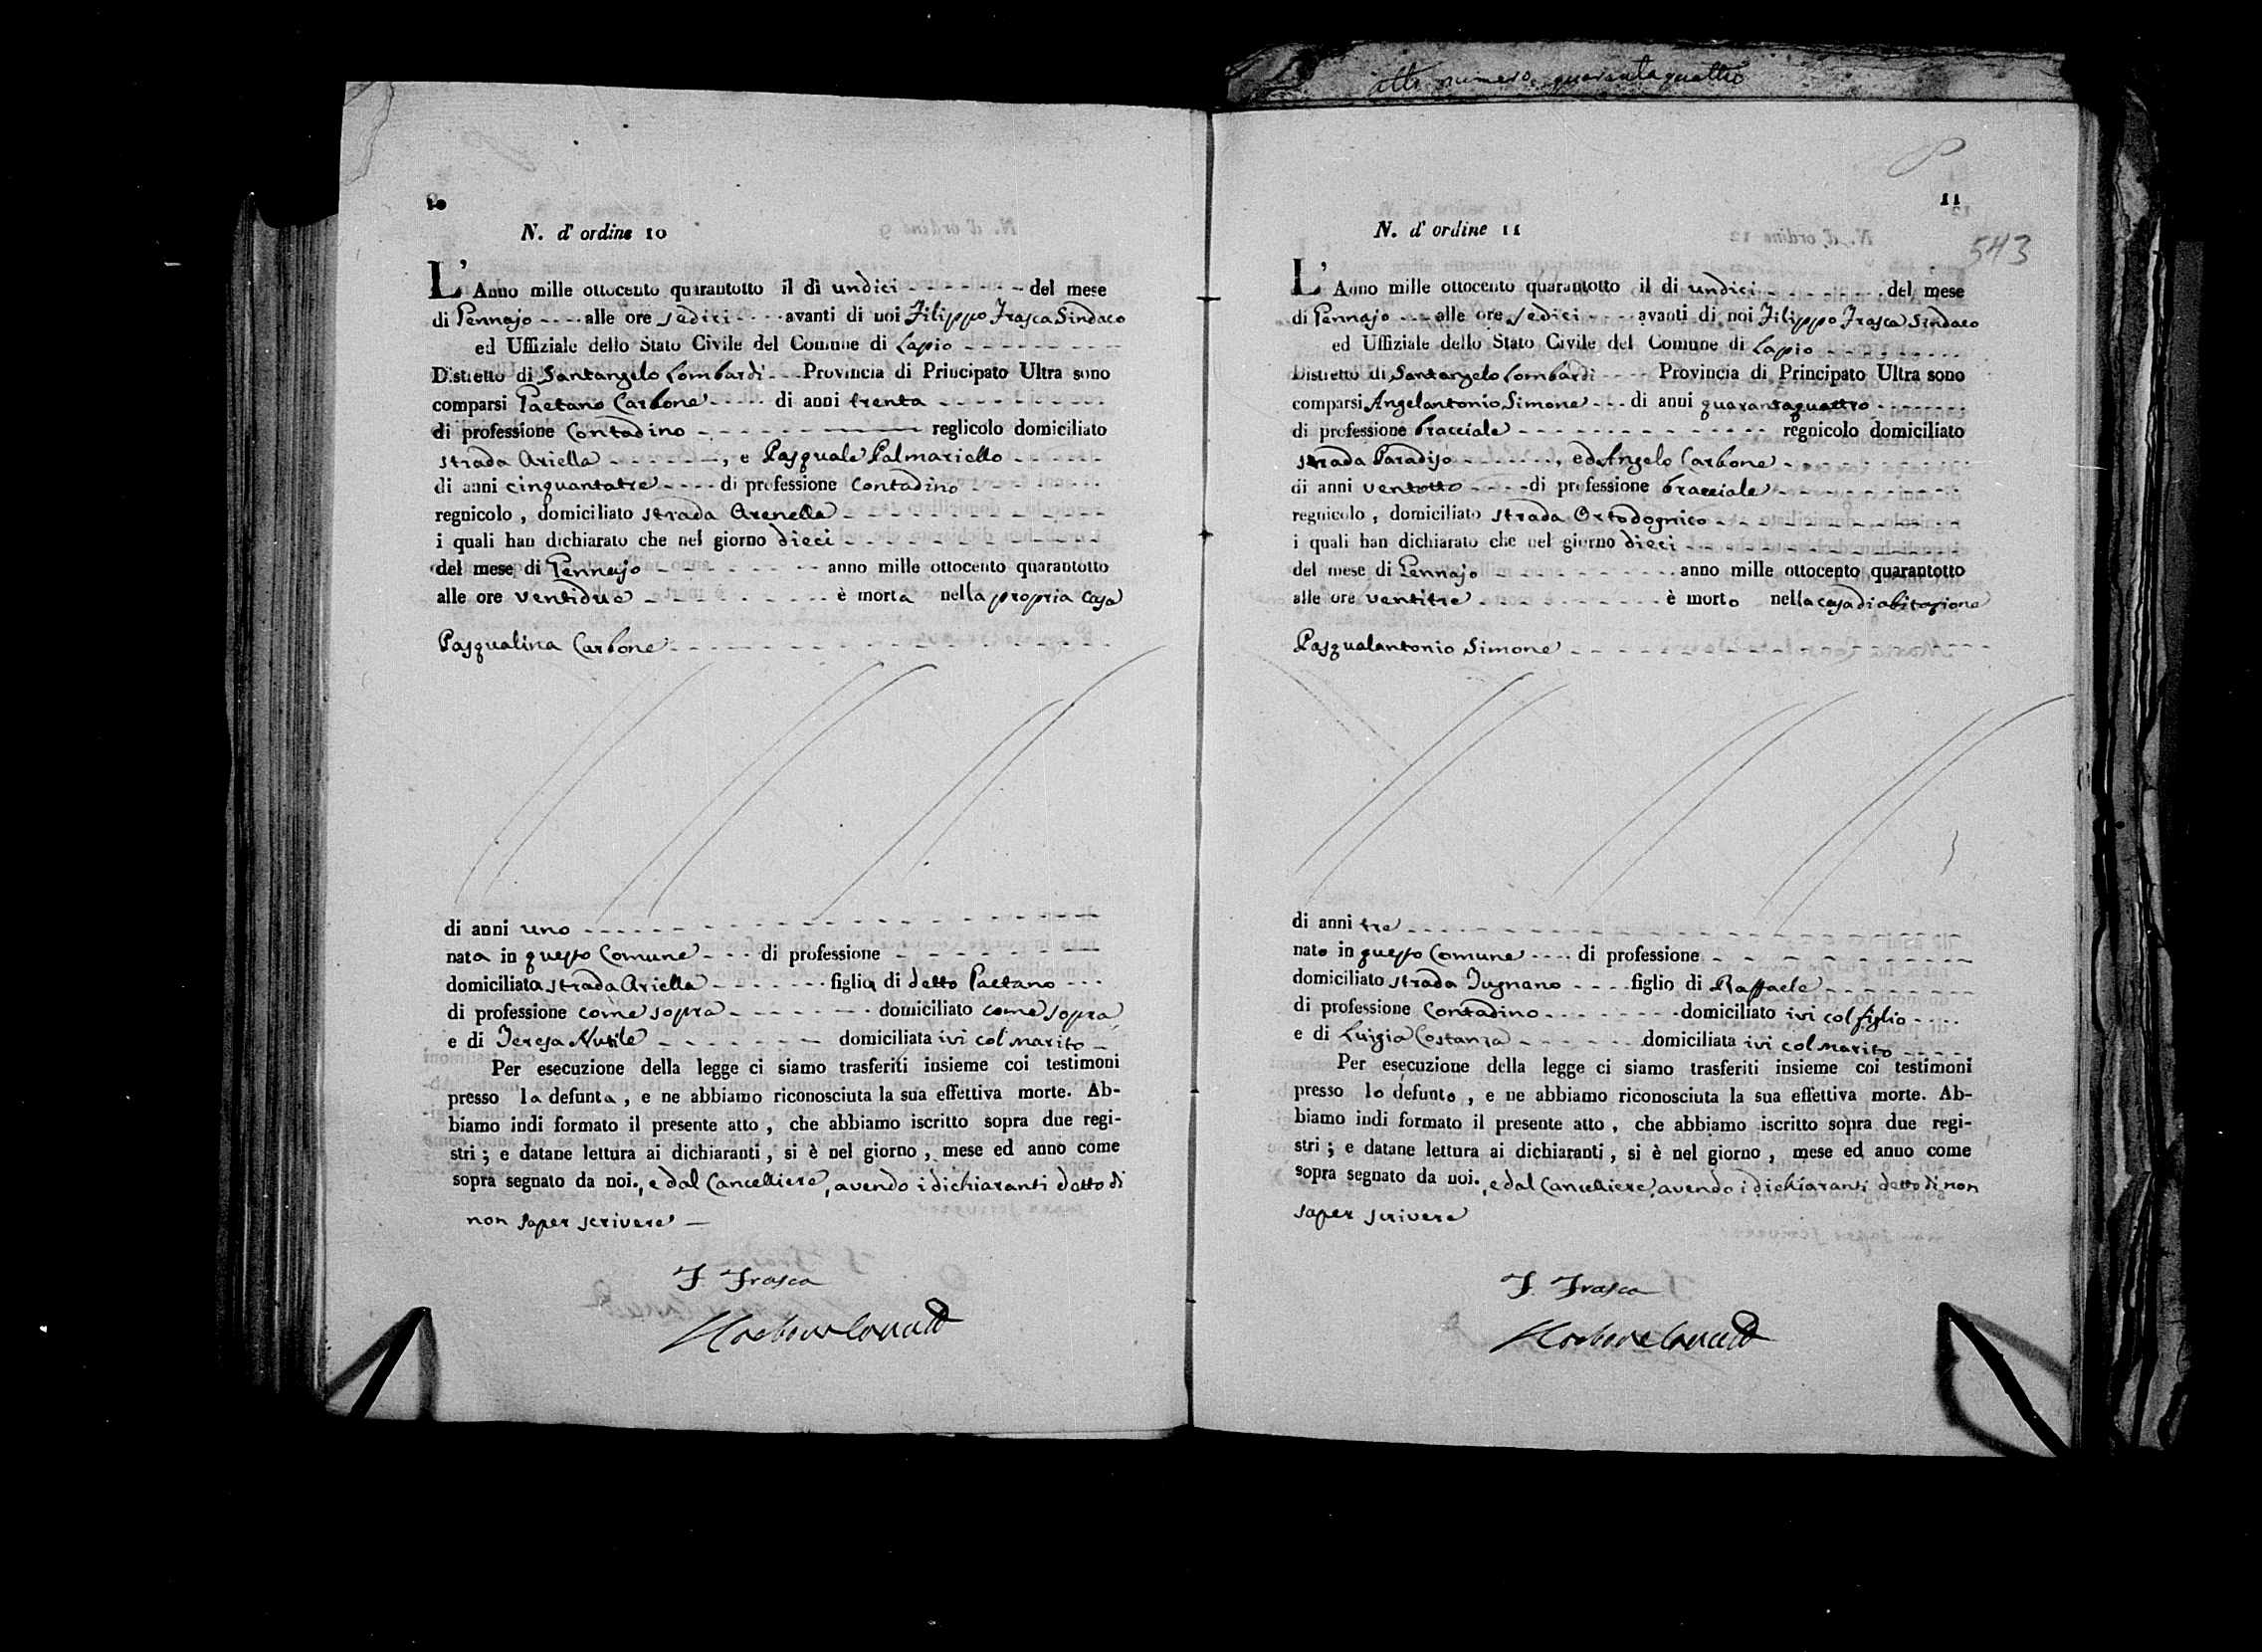 atto numero quarantaquattro
10
N. d' ordine 10
L' Anno mille ottocento quarantotto il dì undici del mese
di Gennajo alle ore sedici avanti di noi Filippo Frasca Sindaco
ed Uffiziale dello Stato Civile del Comune di Lapio
Distretto di Santangelo Lombardi Provincia di Principato Ultra sono
comparsi Gaetano Carbone di anni trenta
di professione Contadino reglicolo domiciliato
strada Ariella , e Pasquale Palmariello
di anni cinquantatre di professione Contadino
regnicolo , domiciliato strada Arenella
i quali han dichiarato che nel giorno dieci
del mese di Gennajo anno mille ottocento quarantotto
alle ore ventidue è morta nella propria casa
Pasqualina Carbone
di anni uno
nata in questo Comune di professione
domiciliata strada Ariella figlia di detto Gaetano
di professione come sopra domiciliato come sopra
e di Teresa Nutile domiciliata ivi col marito
Per esecuzione della legge ci siamo trasferiti insieme coi testimoni
presso la defunta , e ne abbiamo riconosciuta la sua effettiva morte. Ab-
biamo indi formato il presente atto , che abbiamo iscritto sopra due regi-
stri ; e datane lettura ai dichiaranti , si è nel giorno , mese ed anno come
sopra segnato da noi. , e dal Cancelliere , avendo i dichiaranti detto di
non saper scrivere
F. Frasca
11
543
N. d' ordine 11
L' Anno mille ottocento quarantotto il di undici del mese
di Gennajo alle ore sedici avanti di noi Filippo Frasca Sindaco
ed Uffiziale dello Stato Civile del Comune di Lapio
Distretto di Santangelo Lombardi Provincia di Principato Ultra sono
comparsi Angelantonio Simone di anni quarantaquattro
di professione bracciale regnicolo domiciliato
strada Paradiso , ed Angelo Carbone
di anni ventotto di professione bracciale
regnicolo , domiciliato strada Ortodognico
i quali han dichiarato che nel giorno dieci
del mese di Gennajo anno mille ottocento quarantotto
alle ore ventitre è morto nella casa di abitazione
Pasqualantonio Simone
di anni tre
nato in questo Comune di professione
domiciliato strada Iugnano figlio di Raffaele
di professione Contadino domiciliato ivi col figlio
e di Luigia Costanza domiciliata ivi col marito
Per esecuzione della legge ci siamo trasferiti insieme coi testimoni
presso lo defunto , e ne abbiamo riconosciuta la sua effettiva morte. Ab-
biamo indi formato il presente atto , che abbiamo iscritto sopra due regi-
stri ; e datane lettura ai dichiaranti , si è nel giorno , mese ed anno come
sopra segnato da noi. , e dal Cancelliere , avendo i dichiaranti detto di non
saper scrivere
F. Frasca